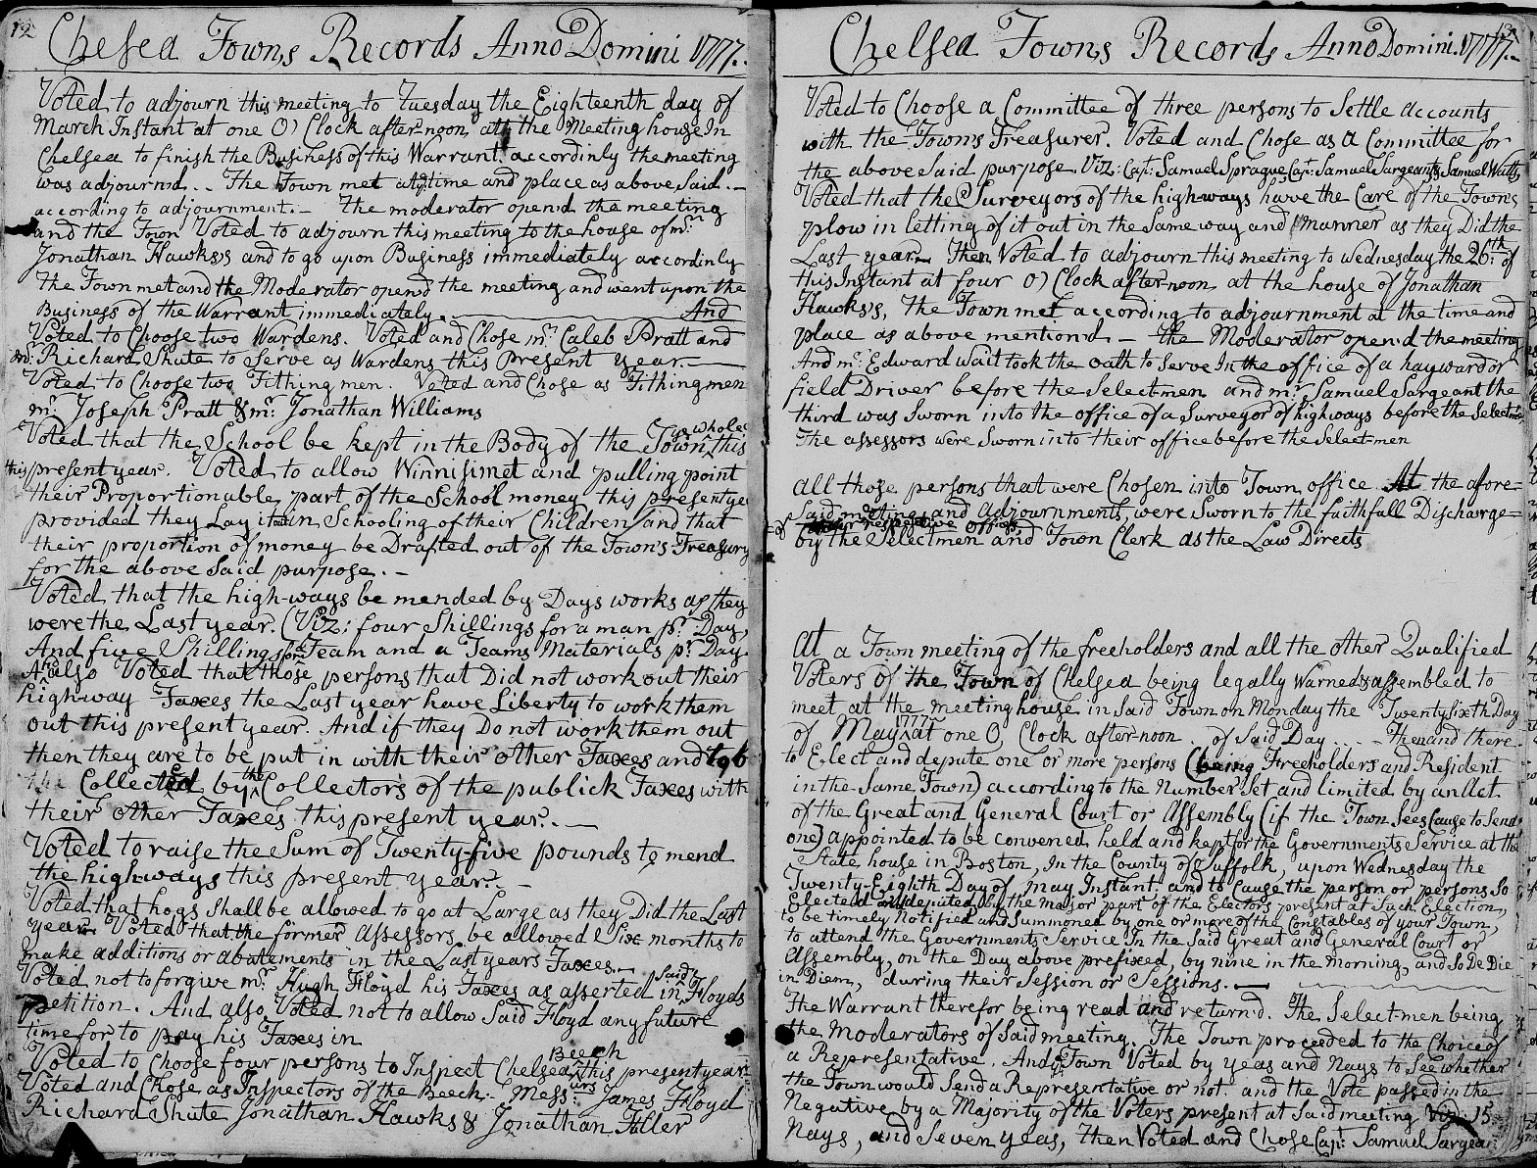 12
Chelsea Towns Records Anno Domini 1777.
Voted to adjourn this meeting to Tuesday the Eighteenth day of
March Instant at one O'Clock after-noon att the Meeting house In
Chelsea to finish the Business of this Warrant. accordinly the meeting
was adjournd.. The Town met at time and place as above Said.
according to adjournment. The moderator open'd the meeting
and the Town Voted to adjourn this meeting to the house of mr.
Jonathan Hawks's and to go upon Business immediately accordinly
The Town met and the Moderator open'd the meeting and went upon the
Business of the Warrant immediately. And
Voted to Choose two Wardens. Voted and Chose mr. Caleb Pratt and
mr. Richard Shute to Serve as Wardens this Present year.
Voted to Choose two Tithing men. Voted and Chose as Tithingmen
mr. Joseph Pratt & mr. Jonathan Williams
Voted that the School be kept in the Body of the Town ye whole this
this present year. Voted to allow Winnisimet and pulling point
their Proportionable part of the School money this present ye
provided they Lay it in Schooling of their Children and that
their proportion of money be Drafted out of the Town's Treasury
for the above Said purpose.
Voted that the high-ways be mended by Days works as they
were the Last year. (Viz: four Shillings for a man pr. Day,
And five Shillings for a Team and a Teams Materials pr. Day.
And also Voted that those persons that Did not work out their
high-way Taxes the Last year have Liberty to work them
out this present year. And if they Do not work them out
then they are to be put in with their other Taxes and to be
Collected by the Collectors of the publick Taxes with
their other Taxes this present year.
Voted to raise the Sum of Twenty-five pounds to mend
the highways this present year.
Voted that hogs Shall be allowed to go at Large as they Did the Last
year. Voted that the former Assessors be allowed Six months to
make additions or abatements in the Last years Taxes.
Voted not to forgive mr. Hugh Floyd his Taxes as asserted in Said Floyds
petition. And also Voted not to allow Said Floyd any future
time for to pay his Taxes in
Voted to Choose four persons to Inspect Chelsea Beech this present year
Voted and Chose as Inspectors of the Beech. Messrs. James Floyd
Richard Shute Jonathan Hawks & Jonathan Fuller
Chelsea Towns Records Anno Domini. 1777.
Voted to Choose a Committee of three persons to Settle accounts
with the Town's Treasurer. Voted and Chose as a Committee for
the above Said purpose Viz: Capt. Samuel Sprague Capt. Samuel Sargeant & Samuel Watts
Voted that the Surveyors of the high-ways have the Care of the Towns
plow in letting of it out in the Same way and manner as they Did the
Last year. Then Voted to adjourn this meeting to Wednesday the 26th. of
this Instant at four O'Clock after-noon at the house of Jonathan
Hawks's, the Town met according to adjournment at the time and
place as above mention'd - the Moderator open'd the meeting
And mr. Edward Wait took the oath to Serve In the office of a hayward or
field Driver before the Selectmen and mr. Samuel Sargeant the
third was Sworn into the office of a Surveyor of highways before the Selectmen
The assessors were Sworn into their office before the Selectmen
all those persons that were Chosen into Town office At the afore=
Said meeting and adjournments, were Sworn to the faithfull Discharge=
=of their respective offices
by the Selectmen and Town Clerk as the Law Directs
At a Town meeting of the freeholders and all the other Qualified
Voters of the Town of Chelsea being legally Warned & assembled to
meet at the meeting house in Said Town on Monday the Twenty Sixth Day
of May 1777 at one O'Clock after-noon of Said Day.... Then and there
to Elect and depute one or more persons (being Freeholders and Resident
in the Same Town) according to the Number Set and limited by an Act.
of the Great and General Court or Assembly (if the Town Sees Cause to Send
one) appointed to be convened held and kept for the Governments Service at the
State house in Boston, In the County of Suffolk, upon Wednesday the
Twenty-Eighth Day of may Instant. and to Cause the person or persons So
Elected and deputed by the major part of the Electors present at Such Election,
to be timely Notified and Summoned by one or more of the Constables of your Town,
to attend the Governments Service In the Said Great and General Court or
Assembly, on the Day above prefixed, by nine in the morning, and So De Die
in Diem, during their Session or Sessions.
The Warrant therefor being read and return'd. The Selectmen being
the Moderators of Said meeting. The Town proceeded to the Choice of
a Representative. And ye Town Voted by yeas and Nays to See whether
the Town would Send a Representative or not and the Vote passed in the
Negative by a Majority of the Voters present at Said meeting Viz: 15
Nays, and Seven yeas, Then Voted and Chose Capt. Samuel Sargeant